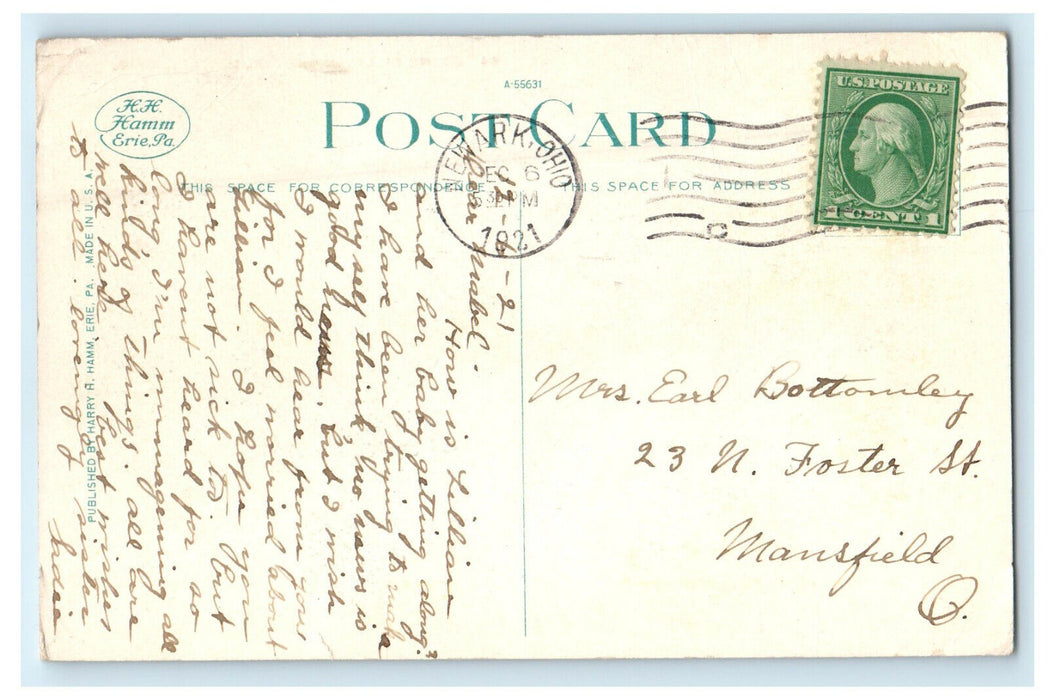 A-55631
POST CARD
H.H.
Hamm
Erie, Pa.
THIS SPACE FOR CORRESPONDENCE
THIS SPACE FOR ADDRESS
NEWARK, OHIO
DEC 6
PM
1921
U.S. POSTAGE
1 CENT 1
-21
Dear Mabel-
How is Lillian
and her baby getting along?
I have been trying to make
myself think "no news is
good news" but I wish
I would hear from you
for I feel worried about
Lillian. I hope you
are not sick too but
I havent heard for so
long I'm immagening all
kinds of things. all are
well here best wishes
to all. lovengly sister
Sadie
Mrs. Earl Bottomley
23 N. Foster St.
Mansfield
O.
PUBLISHED BY HARRY H. HAMM, ERIE, PA. MADE IN U.S.A.